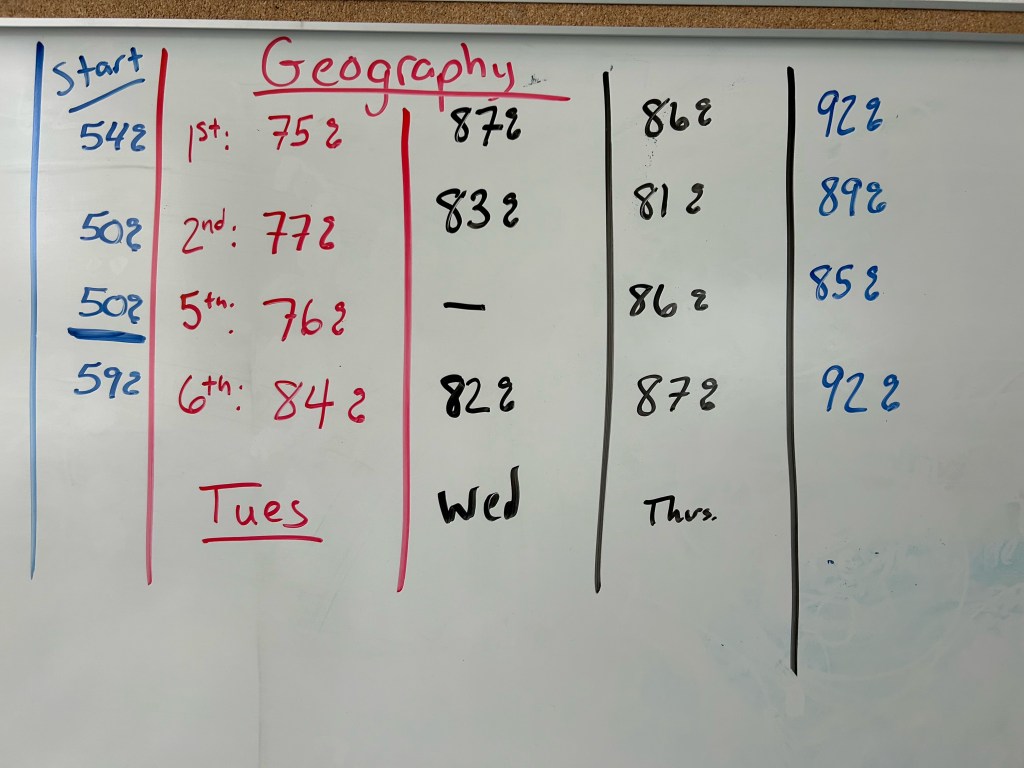 Start Geography
54% 1st: 75% 87% 86% 92%
50% 2nd: 77% 83% 81% 89%
50% 5th: 76% — 86% 85%
59% 6th: 84% 82% 87% 92%
Tues Wed Thurs.